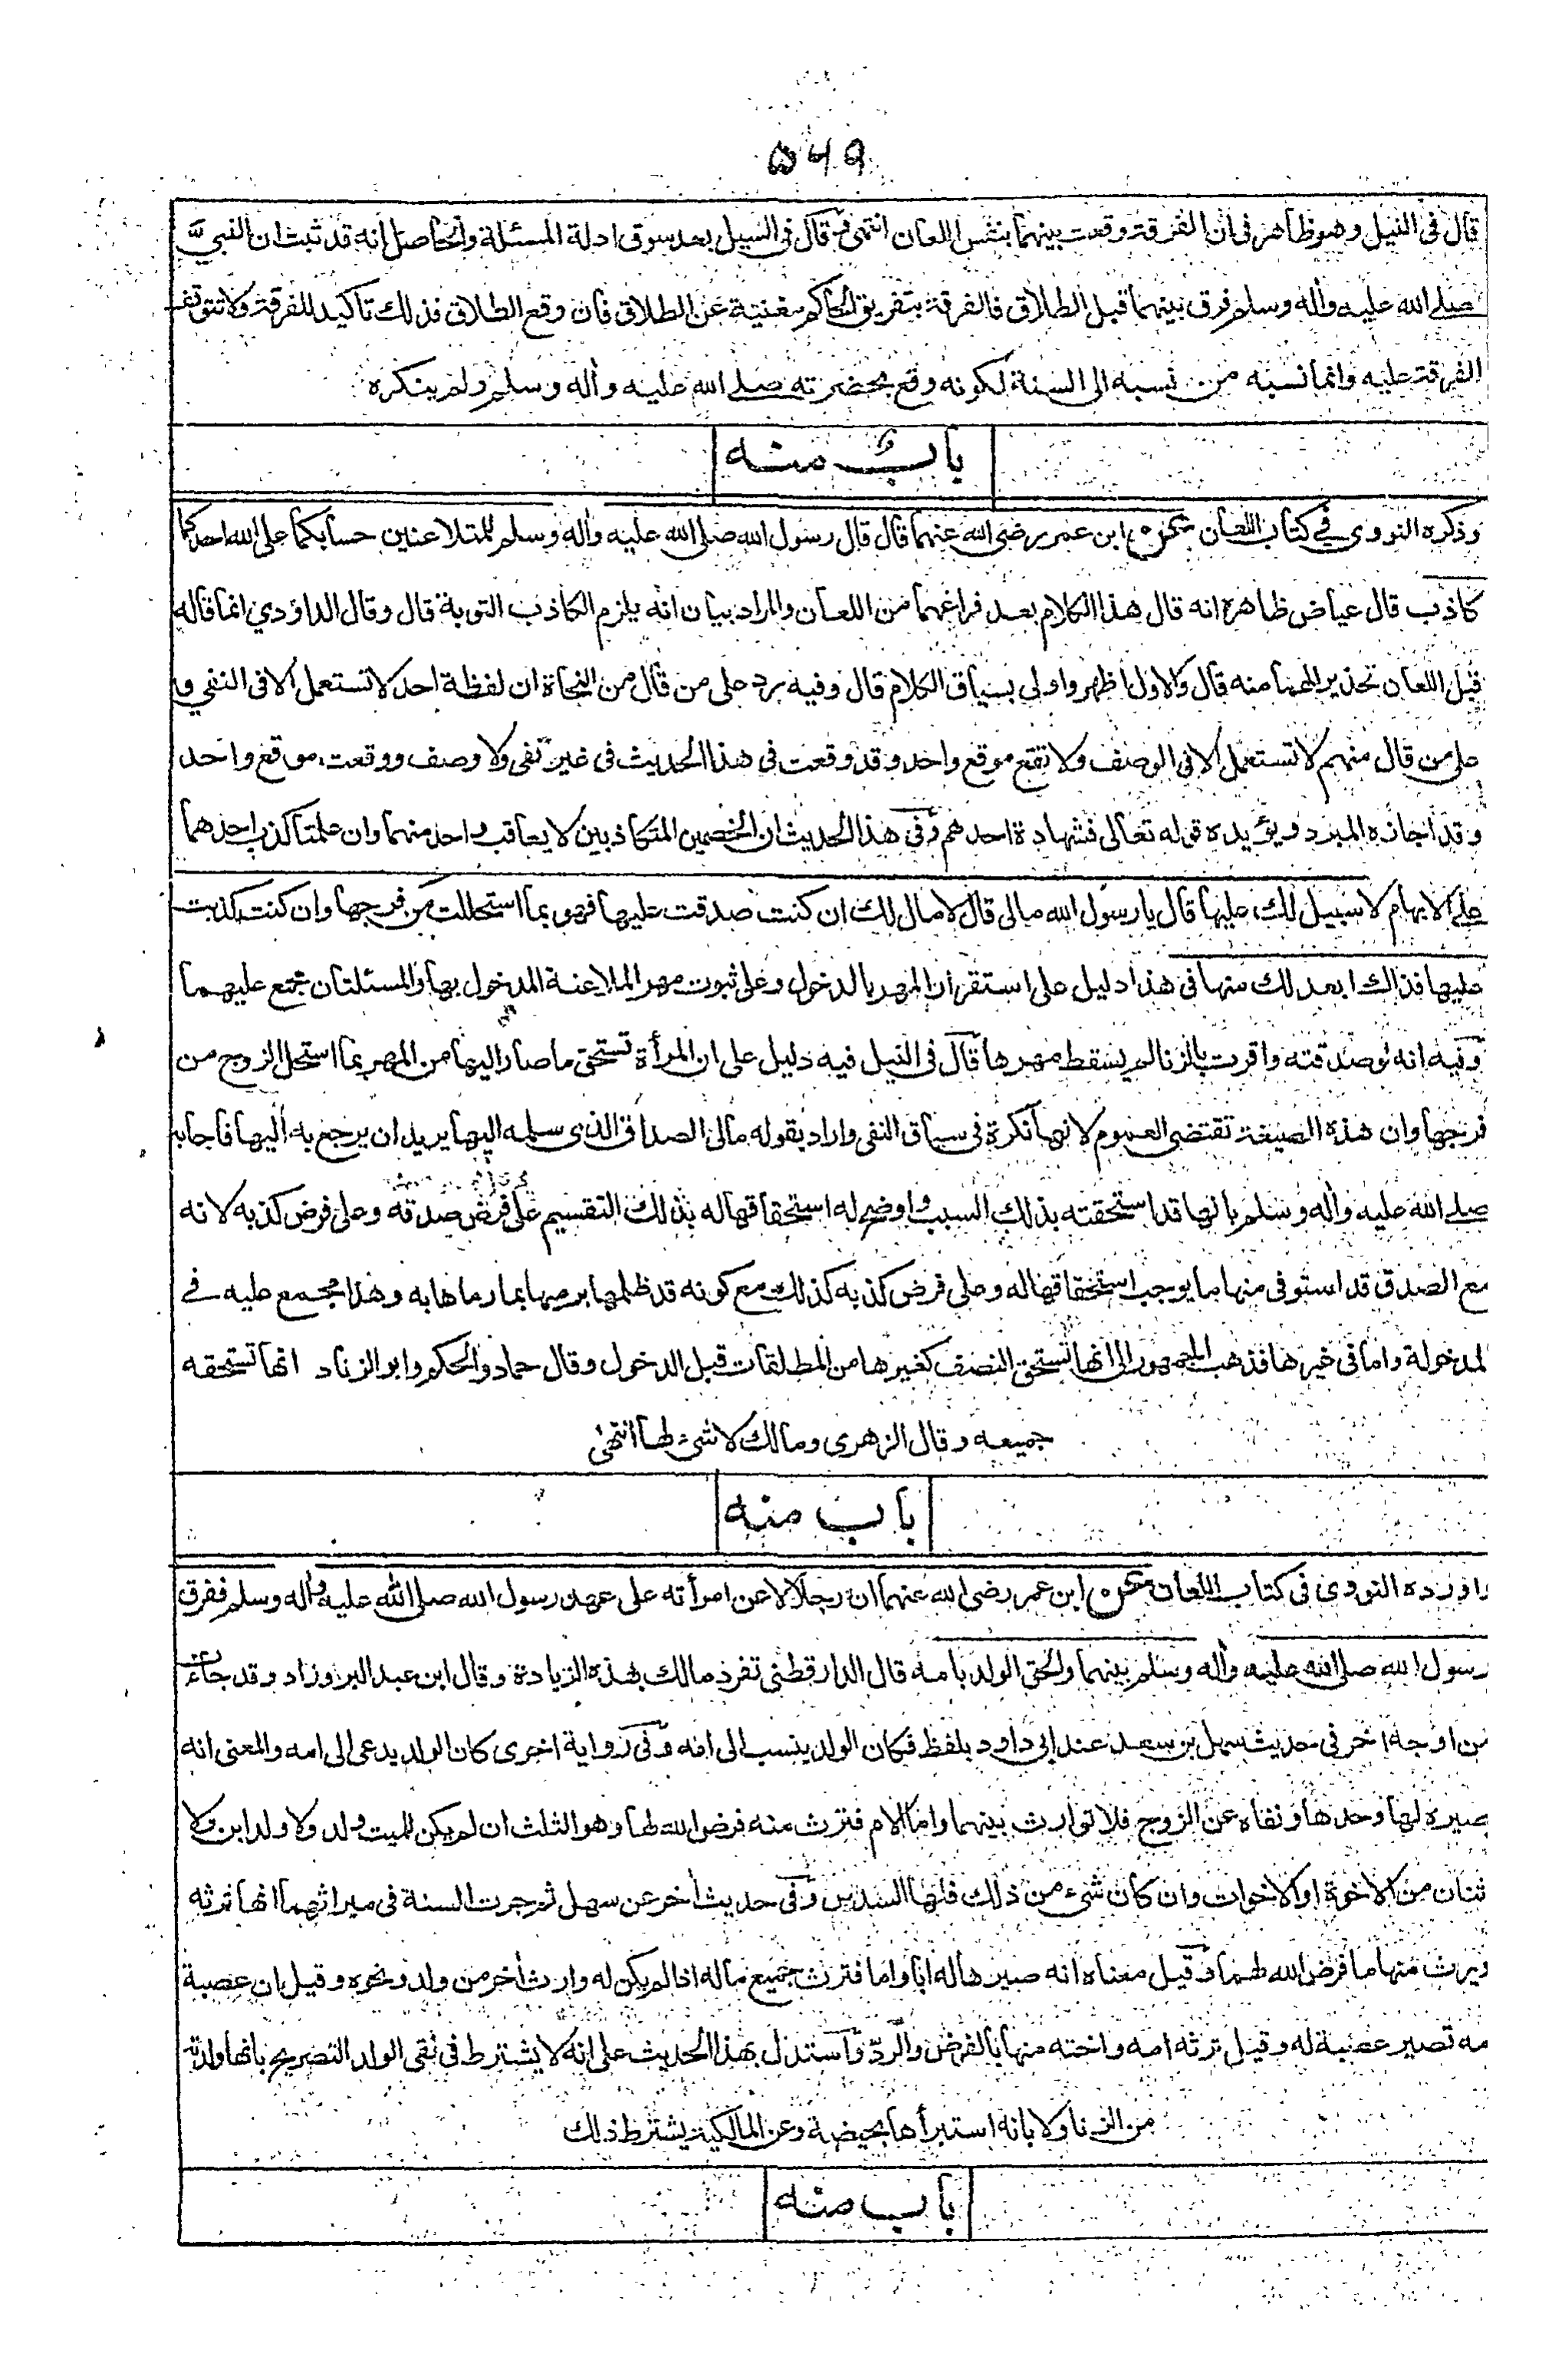 ۵۶۹
قال فى النيل وهو ظاهر فى ان الفرقة وقعت بينهما بنفس اللعان انتهى قال فى السيل بعد سوق ادلة المسئلة والحاصل انه قد ثبت ان النبي
صلى الله عليه واله وسلم فرق بينهما قبل الطلاق فالفرقة بتفريق الحاكم مغنية عن الطلاق فان وقع الطلاق فذلك تاكيد للفرقة ولا تتوقف
الفرقة عليه وانما نسبه من نسبه الى السنة لكونه وقع بحضرته صلى الله عليه واله وسلم ولم ينكره
باب منه
وذكره النووي فى كتاب اللعان عن ابن عمر رضى الله عنهما قال قال رسول الله صلى الله عليه واله وسلم للمتلاعنين حسابكما على الله احدكما
كاذب قال عياض ظاهره انه قال هذا الكلام بعد فراغهما من اللعان والمراد بيان انه يلزم الكاذب التوبة قال وقال الداؤدي انما قاله
قبل اللعان تحذيرا لهما منه قال والاول اظهر واولى بسياق الكلام قال وفيه رد على من قال من النحاة ان لفظة احد لا تستعمل الا فى النفي و
على من قال منهم لا تستعمل الا فى الوصف ولا تقع موقع واحد وقد وقعت فى هذا الحديث فى غير نفى ولا وصف ووقعت موقع واحد
وقد اجازه المبرد ويؤيده قوله تعالى فشهادة احدهم وفى هذا الحديث ان الخصمين المتكاذبين لا يعاقب واحد منهما وان علمنا كذب احدهما
على الابهام لا سبيل لك عليها قال يا رسول الله مالى قال لا مال لك ان كنت صدقت عليها فهو بما استحللت من فرجها وان كنت كذبت
عليها فذاك ابعد لك منها فى هذا دليل على استقرار المهر بالدخول وعلى ثبوت مهر الملاعنة المدخول بها والمسئلتان مجمع عليهما
وفيه انه لو صدقته واقرت بالزنا لم يسقط مهرها قال فى النيل فيه دليل على ان المرأة تستحق ما صار اليها من المهر بما استحل الزوج من
فرجها وان هذه الصيغة تقتضى العموم لانها نكرة فى سياق النفى واراد بقوله مالى الصداق الذى سلمه اليها يريد ان يرجع به اليها فاجابه
صلى الله عليه واله وسلم بانها قد استحقته بذلك السبب واوضح له استحقاقها له بذلك التقسيم على فرض صدقه وعلى فرض كذبه لانه
مع الصدق قد استوفى منها ما يوجب استحقاقها له وعلى فرض كذبه كذلك مع كونه قد ظلمها برميها بما رماها به وهذا مجمع عليه فى
المدخولة واما فى غيرها فذهب الجمهور الى انها تستحق النصف كغيرها من المطلقات قبل الدخول وقال حماد والحكم وابو الزناد انها تستحقه
جميعه وقال الزهرى ومالك لا شىء لها انتهى
باب منه
واورده النووى فى كتاب اللعان عن ابن عمر رضى الله عنهما ان رجلا لاعن امرأته على عهد رسول الله صلى الله عليه واله وسلم ففرق
رسول الله صلى الله عليه واله وسلم بينهما والحق الولد بامه قال الدارقطنى تفرد مالك بهذه الزيادة وقال ابن عبد البر وزاد وقد جاءت
من اوجه اخر فى حديث سهل بن سعد عند ابى داود بلفظ فكان الولد ينسب الى امه وفى رواية اخرى كان الولد يدعى الى امه والمعنى انه
صيره لها وحدها ونفاه عن الزوج فلا توارث بينهما واما الام فترث منه فرض الله لها وهو الثلث ان لم يكن للميت ولد ولا ولد ابن ولا
ثنان من الاخوة او الاخوات وان كان شىء من ذلك فلها السدس وفى حديث اخر عن سهل ثم جرت السنة فى ميراثهما انها ترثه
ويرث منها ما فرض الله لهما وقيل معناه انه صيرها له ابا واما فترث جميع ماله اذا لم يكن له وارث اخر من ولد ونحوه وقيل ان عصبة
مه تصير عصبة له وقيل ترثه امه واخته منها بالفرض والرد واستدل بهذا الحديث على انه لا يشترط فى نفى الولد التصريح بانها ولدته
من الزنا ولا بانه استبرأها بحيضة وعن المالكية يشترط ذلك
باب منه